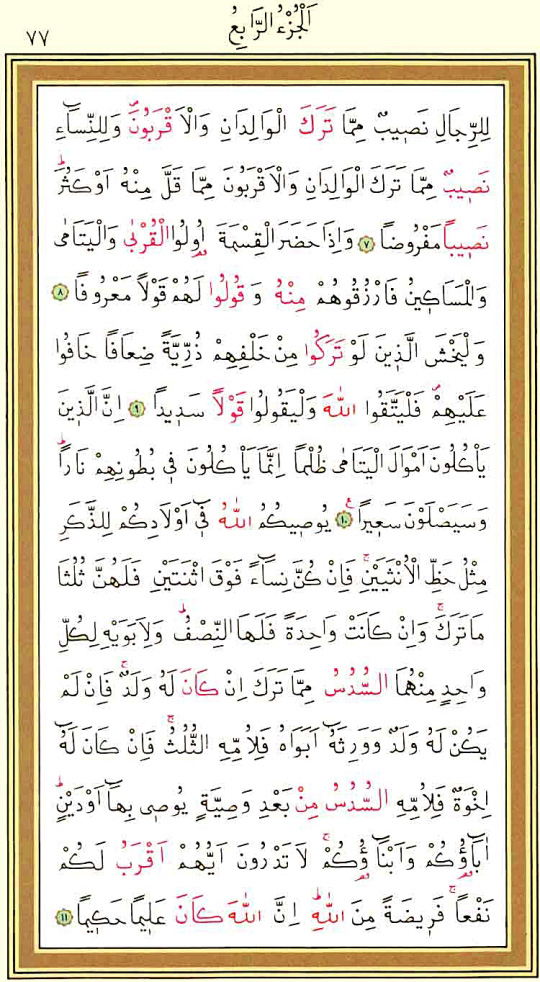 اَلْجُزْءُ الرَّابِعُ
٧٧
لِلرِّجَالِ نَصٖيبٌ مِمَّا تَرَكَ الْوَالِدَانِ وَالْاَقْرَبُونَۖ وَلِلنِّسَٓاءِ
نَصٖيبٌ مِمَّا تَرَكَ الْوَالِدَانِ وَالْاَقْرَبُونَ مِمَّا قَلَّ مِنْهُ اَوْ كَثُرَؕ
نَصٖيباً مَفْرُوضاً ﴿٧﴾ وَاِذَا حَضَرَ الْقِسْمَةَ اُو۬لُوا الْقُرْبٰى وَالْيَتَامٰى
وَالْمَسَاكٖينُ فَارْزُقُوهُمْ مِنْهُ وَقُولُوا لَهُمْ قَوْلاً مَعْرُوفاً ﴿٨﴾
وَلْيَخْشَ الَّذٖينَ لَوْ تَرَكُوا مِنْ خَلْفِهِمْ ذُرِّيَّةً ضِعَافاً خَافُوا
عَلَيْهِمْۖ فَلْيَتَّقُوا اللّٰهَ وَلْيَقُولُوا قَوْلاً سَدٖيداً ﴿٩﴾ اِنَّ الَّذٖينَ
يَأْكُلُونَ اَمْوَالَ الْيَتَامٰى ظُلْماً اِنَّمَا يَأْكُلُونَ فٖي بُطُونِهِمْ نَاراًؕ
وَسَيَصْلَوْنَ سَعٖيراًࣖ ﴿١٠﴾ يُوصٖيكُمُ اللّٰهُ فٖٓي اَوْلَادِكُمْ لِلذَّكَرِ
مِثْلُ حَظِّ الْاُنْثَيَيْنِۚ فَاِنْ كُنَّ نِسَٓاءً فَوْقَ اثْنَتَيْنِ فَلَهُنَّ ثُلُثَا
مَا تَرَكَۚ وَاِنْ كَانَتْ وَاحِدَةً فَلَهَا النِّصْفُؕ وَلِاَبَوَيْهِ لِكُلِّ
وَاحِدٍ مِنْهُمَا السُّدُسُ مِمَّا تَرَكَ اِنْ كَانَ لَهُ وَلَدٌۚ فَاِنْ لَمْ
يَكُنْ لَهُ وَلَدٌ وَوَرِثَهُٓ اَبَوَاهُ فَلِاُمِّهِ الثُّلُثُۚ فَاِنْ كَانَ لَهُٓ
اِخْوَةٌ فَلِاُمِّهِ السُّدُسُ مِنْ بَعْدِ وَصِيَّةٍ يُوصٖي بِهَٓا اَوْ دَيْنٍؕ
اٰبَٓاؤُ۬كُمْ وَاَبْنَٓاؤُ۬كُمْۚ لَا تَدْرُونَ اَيُّهُمْ اَقْرَبُ لَكُمْ
نَفْعاًۚ فَرٖيضَةً مِنَ اللّٰهِؕ اِنَّ اللّٰهَ كَانَ عَلٖيماً حَكٖيماً ﴿١١﴾